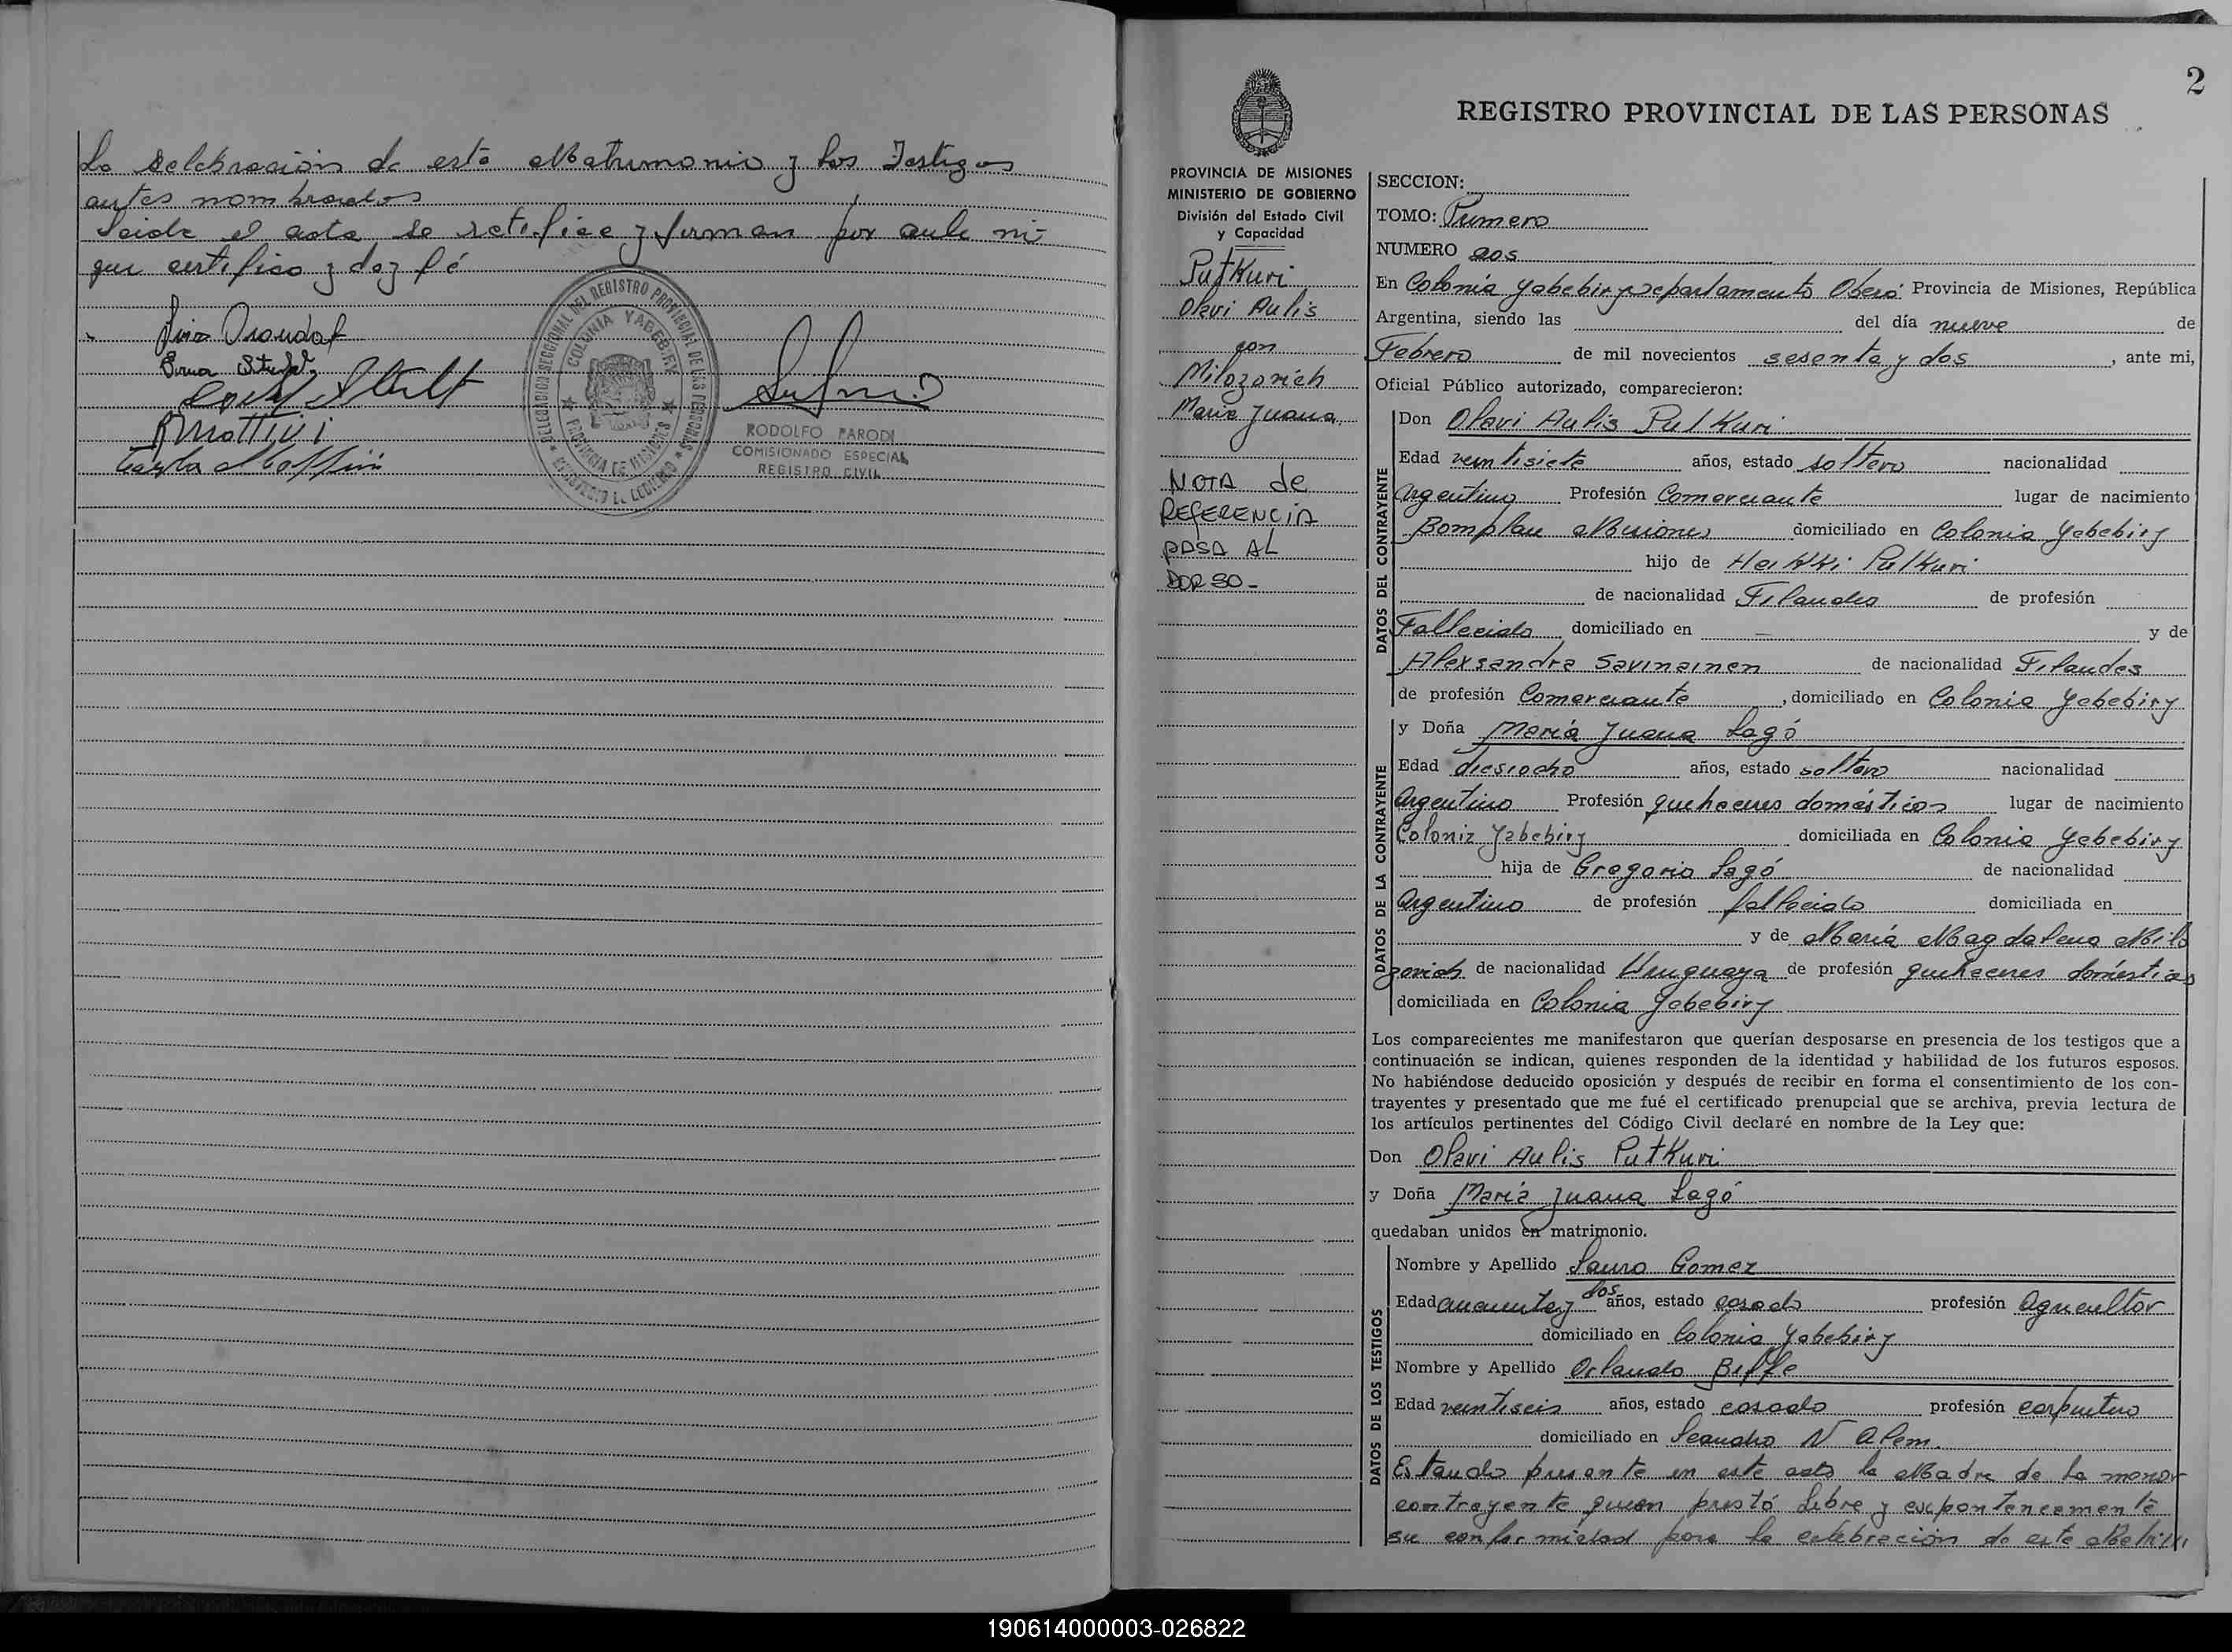 La Selebración de este Matrimonio y los Testigos
antes nombrados
Leida el acta, se ratifica y firman por ante mi
que certifico y doy fé
DELEGACION SECCIONAL DEL REGISTRO PROVINCIAL DE LAS PERSONAS
COLONIA YABEBIRY
PROVINCIA DE MISIONES
RODOLFO PARODI
COMISIONADO ESPECIAL
REGISTRO CIVIL
2
REGISTRO PROVINCIAL DE LAS PERSONAS
PROVINCIA DE MISIONES
MINISTERIO DE GOBIERNO
División del Estado Civil
y Capacidad
PutKuri
Olavi Aulis
con
Milozovich
María Juana
NOTA de
REFERENCIA
PASA AL
DORSO-
SECCION:
TOMO: Primero
NUMERO dos
En Colonia Yabebiry Departamento Oberá Provincia de Misiones, República
Argentina, siendo las del día nueve de
Febrero de mil novecientos sesenta y dos, ante mi,
Oficial Público autorizado, comparecieron:
DATOS DEL CONTRAYENTE
Don Olavi Aulis PutKuri
Edad veintisiete años, estado soltero nacionalidad
Argentino Profesión Comerciante lugar de nacimiento
Bomplan Misiones domiciliado en Colonia Yabebiry
hijo de HeiKKi PutKuri
de nacionalidad Filandes de profesión
Fallecido domiciliado en — y de
Alexsandra Savinainen de nacionalidad Filandes
de profesión Comerciante, domiciliado en Colonia Yabebiry
DATOS DE LA CONTRAYENTE
y Doña María Juana Lagó
Edad diesiocho años, estado soltera nacionalidad
Argentina Profesión quehaceres domésticos lugar de nacimiento
Colonia Yabebiry domiciliada en Colonia Yabebiry
hija de Gregorio Lagó de nacionalidad
Argentino de profesión fallecido domiciliada en
y de María Magdalena Milo
zovich de nacionalidad Uruguaya de profesión quehaceres domésticos
domiciliada en Colonia Yabebiry
Los comparecientes me manifestaron que querían desposarse en presencia de los testigos que a
continuación se indican, quienes responden de la identidad y habilidad de los futuros esposos.
No habiéndose deducido oposición y después de recibir en forma el consentimiento de los con-
trayentes y presentado que me fué el certificado prenupcial que se archiva, previa lectura de
los artículos pertinentes del Código Civil declaré en nombre de la Ley que:
Don Olavi Aulis PutKuri
y Doña María Juana Lagó
quedaban unidos en matrimonio.
DATOS DE LOS TESTIGOS
Nombre y Apellido Lauro Gomez
Edad cincuenta y dos años, estado casado profesión Agricultor
domiciliado en Colonia Yabebiry
Nombre y Apellido Orlando Biffe
Edad veintiseis años, estado casado profesión carpintero
domiciliado en Leandro N Alem.
Estando presente en este acto la Madre de la menor
contrayente quien prestó libre y expontaneamente
su conformidad para la celebración de este Matrim
190614000003-026822